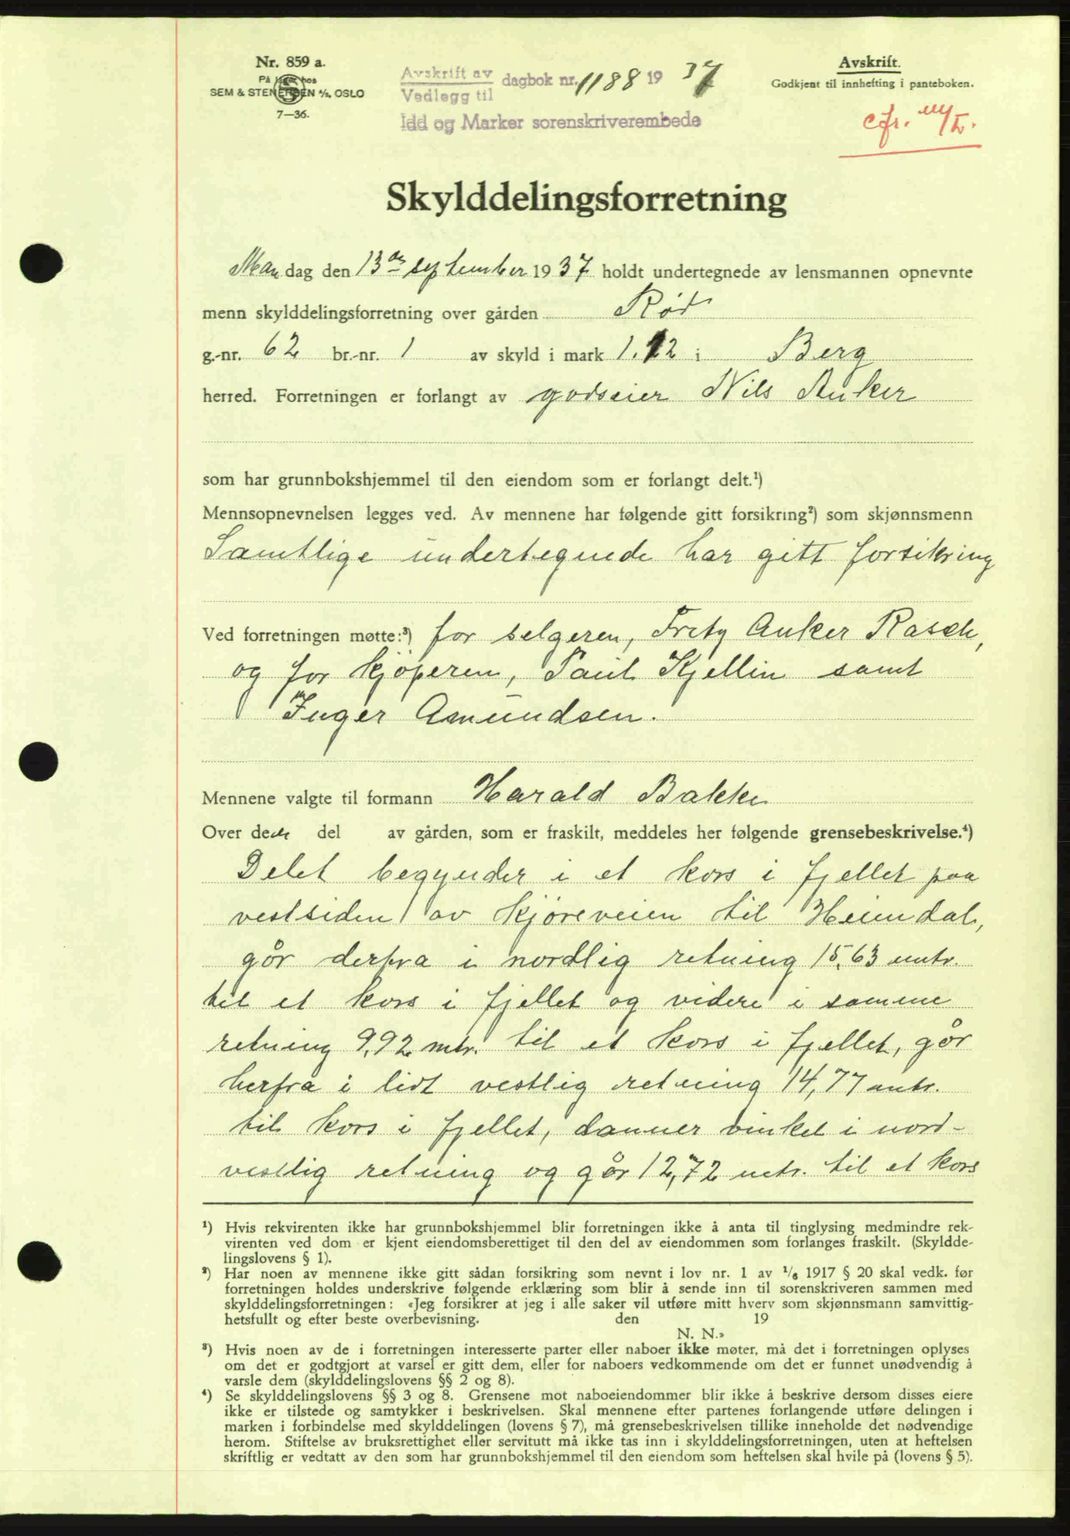 Nr. 859 a.
På lager hos
SEM & STENERSEN A/S, OSLO
7—36.
Avskrift av
Vedlegg til
dagbok nr. 1188 1937
Idd og Marker sorenskriverembede
Avskrift.
Godkjent til innhefting i panteboken.
cfr.
Skylddelingsforretning
Mandag den 13de september 1937 holdt undertegnede av lensmannen opnevnte
menn skylddelingsforretning over gården Rød
g.-nr. 62 br.-nr. 1 av skyld i mark 1.12 i Berg
herred. Forretningen er forlangt av godseier Nils Anker
som har grunnbokshjemmel til den eiendom som er forlangt delt.¹)
Mennsopnevnelsen legges ved. Av mennene har følgende gitt forsikring²) som skjønnsmenn
Samtlige undertegnede har gitt forsikring
Ved forretningen møtte:³) for selgeren, Fritz Anker Rasch,
og for kjøperen, Paul Kjellin samt
Inger Amundsen.
Mennene valgte til formann Harald Bakke
Over den del av gården, som er fraskilt, meddeles her følgende grensebeskrivelse.⁴)
Delet begynder i et kors i fjellet paa
vestsiden av kjøreveien til Heimdal,
går derfra i nordlig retning 15,63 mtr.
til et kors i fjellet og videre i samme
retning 9,92 mtr. til et kors i fjellet, går
herfra i lidt vestlig retning 14,77 mtr.
til kors i fjellet, danner vinkel i nord-
vestlig retning og går 12,72 mtr. til et kors
¹) Hvis rekvirenten ikke har grunnbokshjemmel blir forretningen ikke å anta til tinglysing medmindre rek-
virenten ved dom er kjent eiendomsberettiget til den del av eiendommen som forlanges fraskilt. (Skyldde-
lingslovens § 1).
²) Har noen av mennene ikke gitt sådan forsikring som nevnt i lov nr. 1 av 1/6 1917 § 20 skal vedk. før
forretningen holdes underskrive følgende erklæring som blir å sende inn til sorenskriveren sammen med
skylddelingsforretningen: «Jeg forsikrer at jeg i alle saker vil utføre mitt hverv som skjønnsmann samvittig-
hetsfullt og efter beste overbevisning. den 19
N. N.»
³) Hvis noen av de i forretningen interesserte parter eller naboer ikke møter, må det i forretningen oplyses
om det er godtgjort at varsel er gitt dem, eller for naboers vedkommende om det er funnet unødvendig å
varsle dem (skylddelingslovens §§ 2 og 8).
⁴) Se skylddelingslovens §§ 3 og 8. Grensene mot naboeiendommer blir ikke å beskrive dersom disses eiere
ikke er tilstede og samtykker i beskrivelsen. Skal mennene efter partenes forlangende utføre delingen i
marken i forbindelse med skylddelingen (lovens § 7), må grensebeskrivelsen tillike inneholde det nødvendige
herom. Stiftelse av bruksrettighet eller servitutt må ikke tas inn i skylddelingsforretningen, uten at heftelsen
skriftlig er vedtatt av den som har grunnbokshjemmel til den eiendom som heftelsen skal hvile på (lovens § 5).